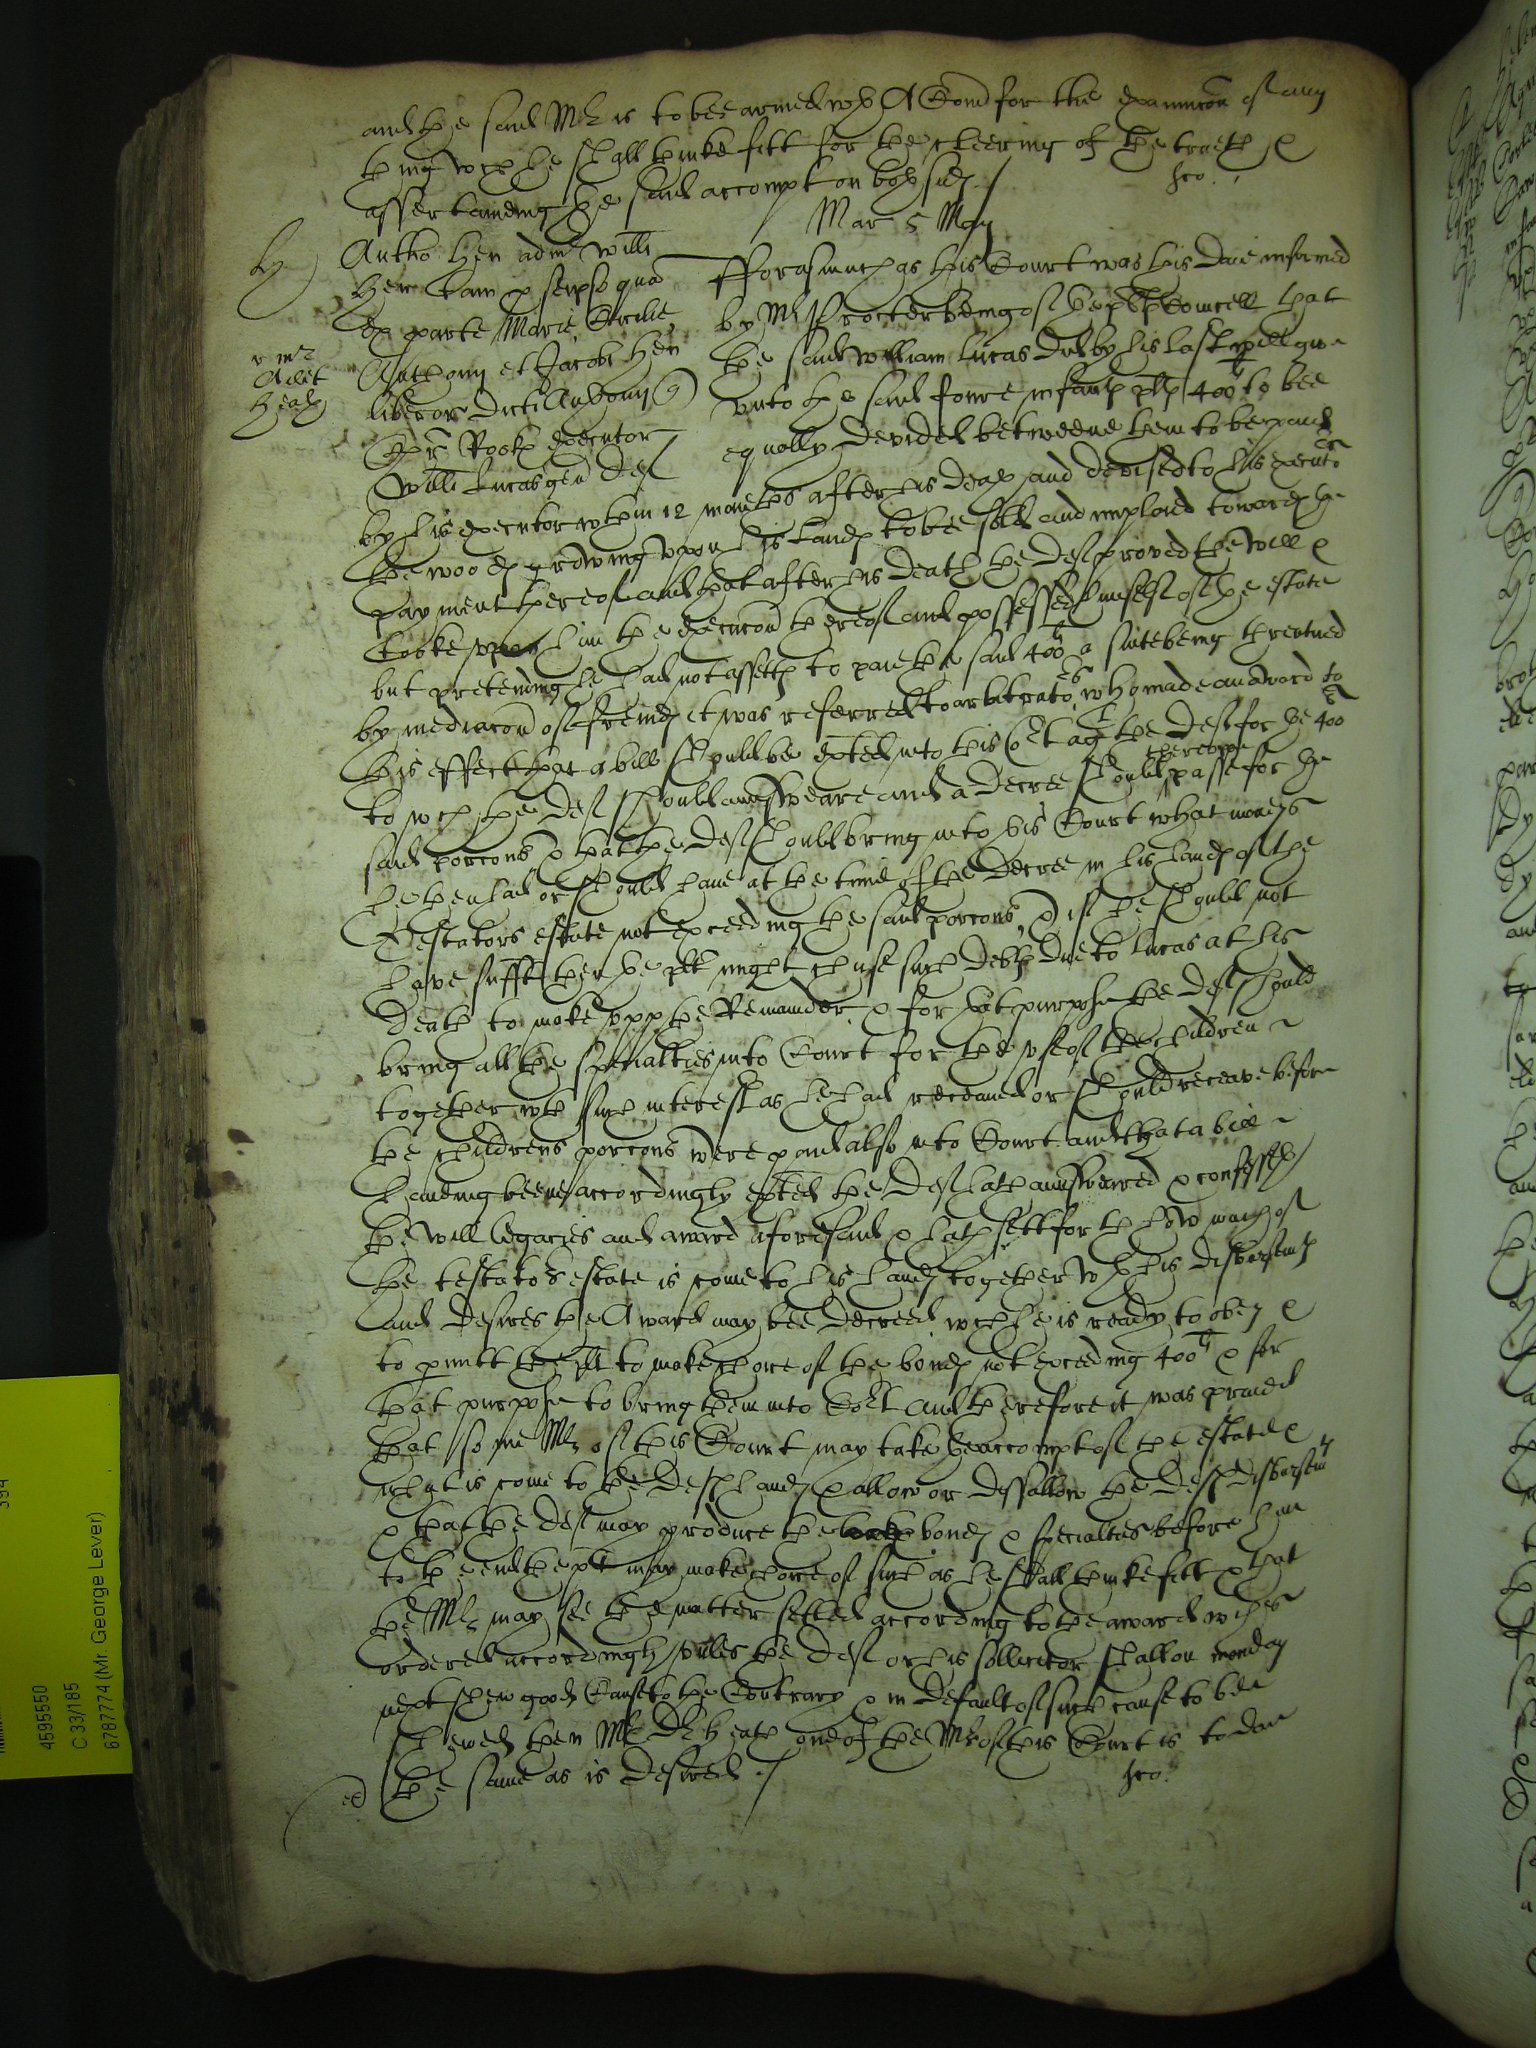 and the said Mr is to bee armed wth A Com for the examinacon of any
thing wch he shall thinke fitt for the cleering of the trueth &
assertaineing the said accompt on both sides /
Mar 5 May
Antho Hen adm Willi
Hen tam p seipso qua
ex parte Marie
Anthony et Jacobi Hen
liberor dicti Anthony
Rooke executor
Willi Lucas gen Def
r mr
Heath
Forasmuch as this Court was this daie informed
by Mr Procter being of the pltes Councell that
the said William Lucas did by his last will give
unto the said foure infant pltes 400li to bee
equally devided betweene them to be paid
by his executor wthin 12 monethes after his death and devised to his executor
the woods growing upon his lands to bee sold and imploied towards the
payment thereof and that after his death the def proved the will &
tooke upon him the execucon thereof and possessed himselfe of the estate
but pretending he had not assetts to paie the said 400li a suite being threatned
by mediacon of freinds it was referred to arbitrators who made an award to
this effect that a bill should be exted into this Cort agt the def for the 400li
to wch the def should answeare and a decree should thereupon passe for the
said porcons & that the def should bring into this Court what moneys
he then had or should have at the time of the decree in his hands of the
Testators estate not exceeding the said porcons, & if he should not
have suffict then the plts might chuse such debts due to Lucas at his
death to make upp the Remainder & for that purpose the def should
bring all the specialties into Court for the use of the children
together wth such interest as he had received or should receave before
the childrens porcons were paid also into Court. and that a bill
haveing beene accordingly exted the def hath aunsweared & confesseth
the will legacies and award aforesaid & hath sett forth how much of
the testators estate is come to his hands together wth his disbursemts
and desires the Award may bee decreed wch he is ready to obey &
to pmitt the plt to make choice of the bonds not exceeding 400li & for
that purpose to bring them into Cort And therefore it was praied
that some Mr of this Court may take the accompt of the estate &
what is come to the defs hands & allow or dissallow the defs disbursemts
& that the def may produce the bonds & specialties before him
to the end the plt may make choice of such as he shall thinke fitt & that
the Mr may see the matter setled according to the award wch is
ordered accordingly unles the def or his sollicitor shall on monday
next shew good Cause to the Contrary & in default of such cause to bee
shewed then Mr Dr Heath one of the Mrs of this Court is to doe
the same as is desired. /
4595550
C 33/185
6787774 (Mr. George Lever)